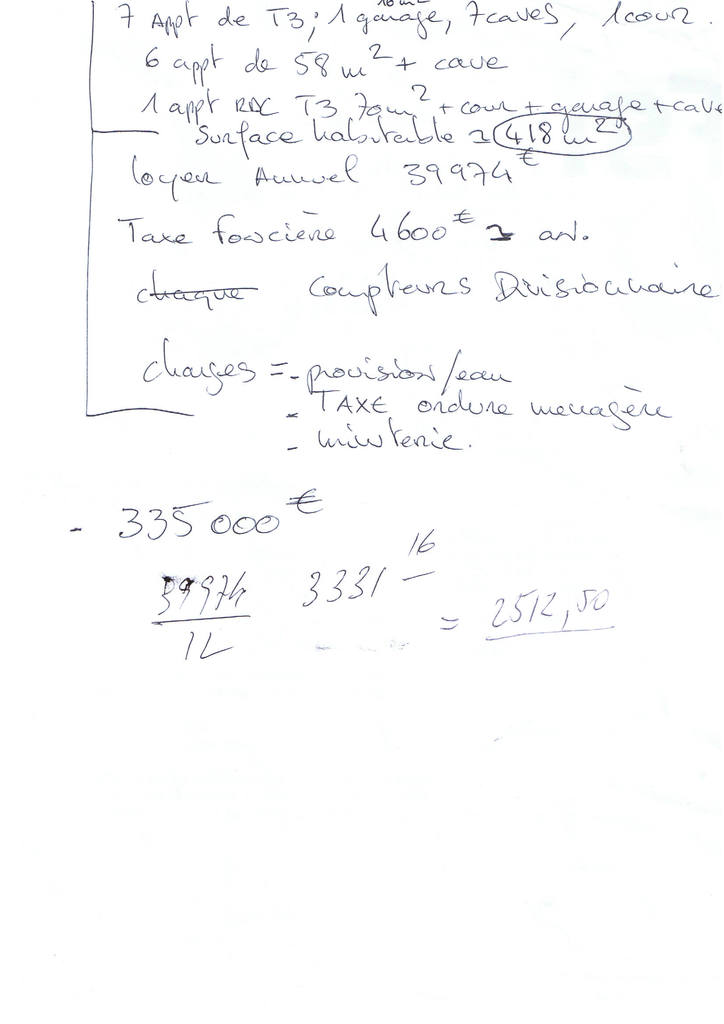 10 m2
7 Appt de T3 ; 1 garage, 7 caves, 1 cour.
6 appt de 58 m2 + cave
1 appt RDC T3 70m2 + cour + garage + cave
Surface habitable ~ 418 m2
loyer Annuel 39974€
Taxe foncière 4600€ ~ an.
chaque Compteurs Divisionnaire
charges = - provision/eau
- TAXE ordure menagère
- minuterie.
- 335 000€
39974 3331 16
12 = 2512,50